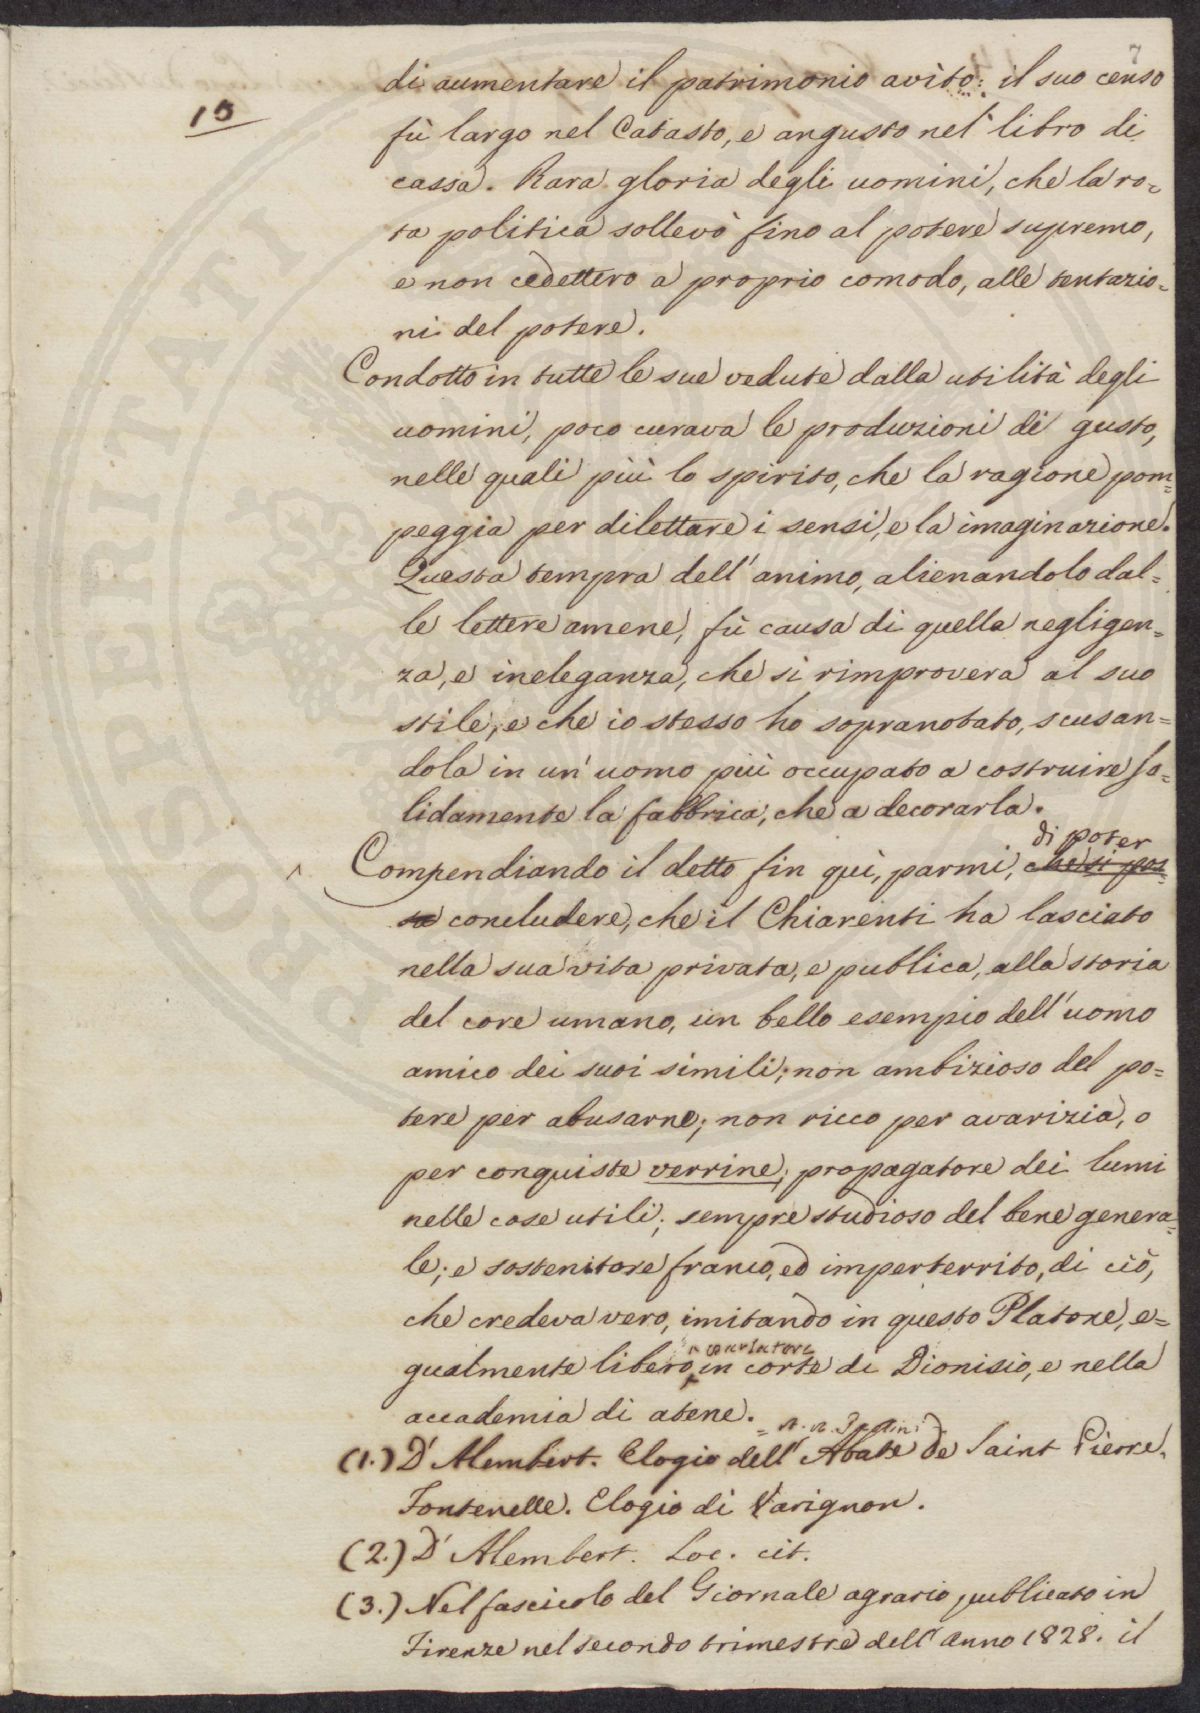 7
di aumentare il patrimonio avìto: il suo censo
15
fù largo nel Catasto, e angusto nel libro di
cassa. Rara gloria degli uomini, che la ro=
ta politica sollevò fino al potere supremo,
e non cedettero a proprio comodo, alle tentazio=
ni del potere.
Condotto in tutte le sue vedute dalla utilità degli
uomini, poco curava le produzioni di gusto,
nelle quali più lo spirito, che la ragione pom=
peggia per dilettare i sensi, e la imaginazione.
Questa tempra dell'animo, alienandolo dal=
le lettere amene, fù causa di quella negligen=
za, e ineleganza, che si rimprovera al suo
stile, e che io stesso ho sopranotato, scusan=
dola in un'uomo più occupato a costruire so=
lidamente la fabbrica, che a decorarla.
di poter
Compendiando il detto fin quì, parmi, che si pos=
sa concludere, che il Chiarenti ha lasciato
nella sua vita privata, e publica, alla storia
del core umano, un bello esempio dell'uomo
amico dei suoi simili; non ambizioso del po=
tere per abusarne; non ricco per avarizia, o
per conquiste verrine; propagatore dei lumi
nelle cose utili; sempre studioso del bene genera=
le; e sostenitore franco, ed imperterrito, di ciò,
che credeva vero, imitando in questo Platone, e=
gualmente libero in corte di Dionisio, e nella
accademia di atene.
(1.) D'Alembert. Elogio dell'Abate de Saint Pierre.
Fontenelle. Elogio di Varignon.
(2.) D'Alembert. Loc. cit.
(3.) Nel fascicolo del Giornale agrario publicato in
Firenze nel secondo trimestre dell'anno 1828. il
PROPERITATI